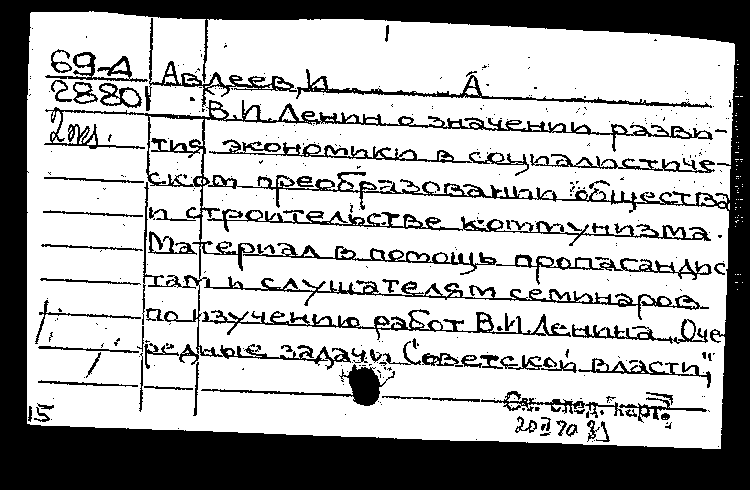 69-А
2880
2 экз.
Авдеев, И. А.
В.И. Ленин о значении разви-
тия экономики в социалистиче-
ском преобразовании общества
и строительстве коммунизма.
Материал в помощь пропагандис
там и слушателям семинаров
по изучению работ В.И. Ленина „Оче-
редные задачи Советской власти",
См. след. карт.
20 II 70
15